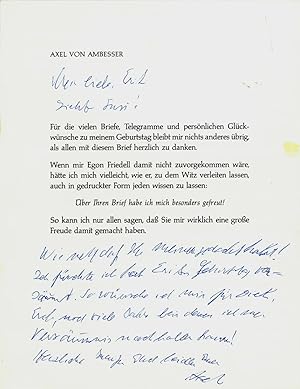 AXEL VON AMBESSER
Für die vielen Briefe, Telegramme und persönlichen Glück-
wünsche zu meinem Geburtstag bleibt mir nichts anderes übrig,
als allen mit diesem Brief herzlich zu danken.
Wenn mir Egon Friedell damit nicht zuvorgekommen wäre,
hätte ich mich vielleicht, wie er, zu dem Witz verleiten lassen,
auch in gedruckter Form jeden wissen zu lassen:
Über Ihren Brief habe ich mich besonders gefreut!
So kann ich nur allen sagen, daß Sie mir wirklich eine große
Freude damit gemacht haben.
Wie nett, daß Ihr
Ich fürchte ich hab Geburtstag ver-
säumt. So wünsche ich mir für Dich,
noch viele Jahre bei denen ich mein
Versäumnis nachholen kann!
Herzliche
Axel